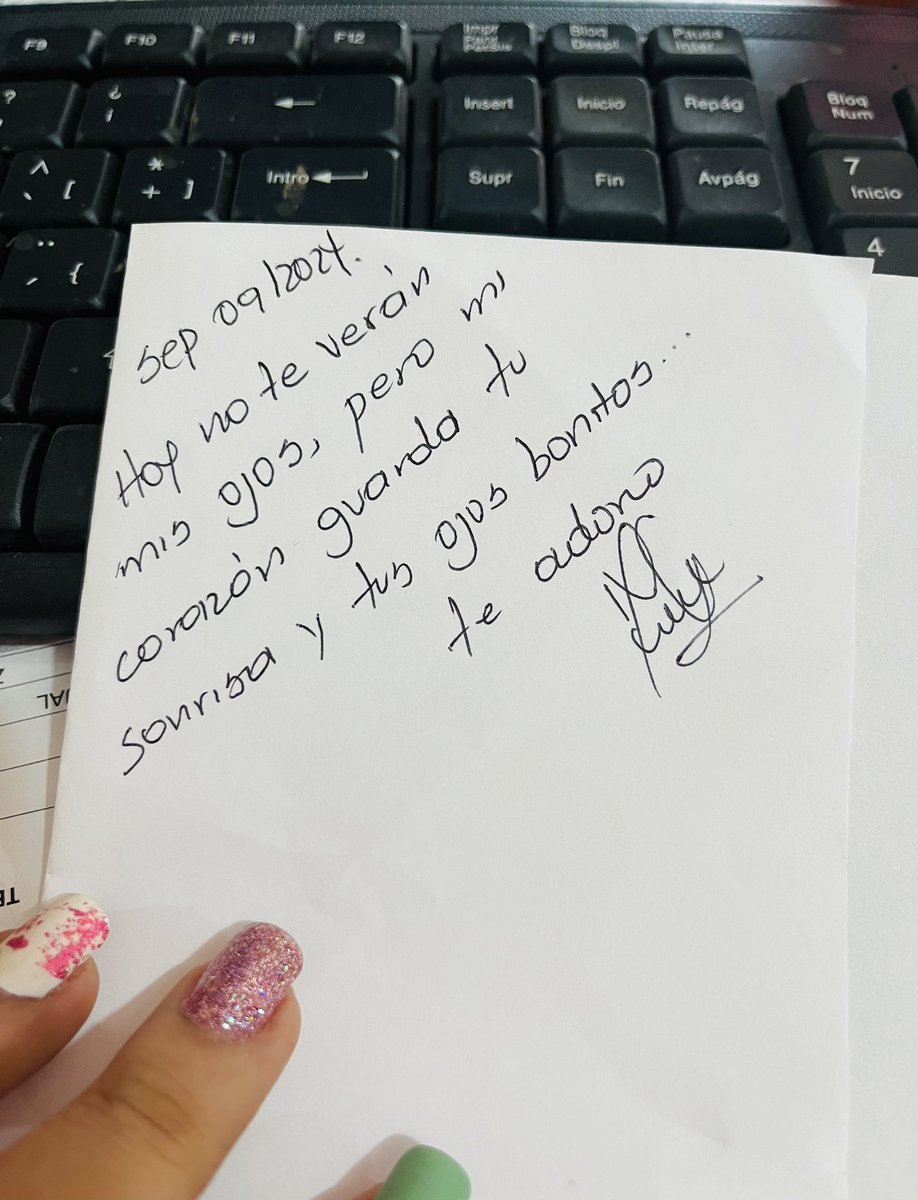 F9 F10 F11 F12 Impr Pant Bloq Despl Pausa Inter
? ¿ Insert Inicio Repág Bloq Num
^ [ * + ] Intro Supr Fin Avpág 7 Inicio
{ 4
sep 09/2024.
Hoy no te verán
mis ojos, pero mi
corazón guarda tu
sonrisa y tus ojos bonitos...
te adoro